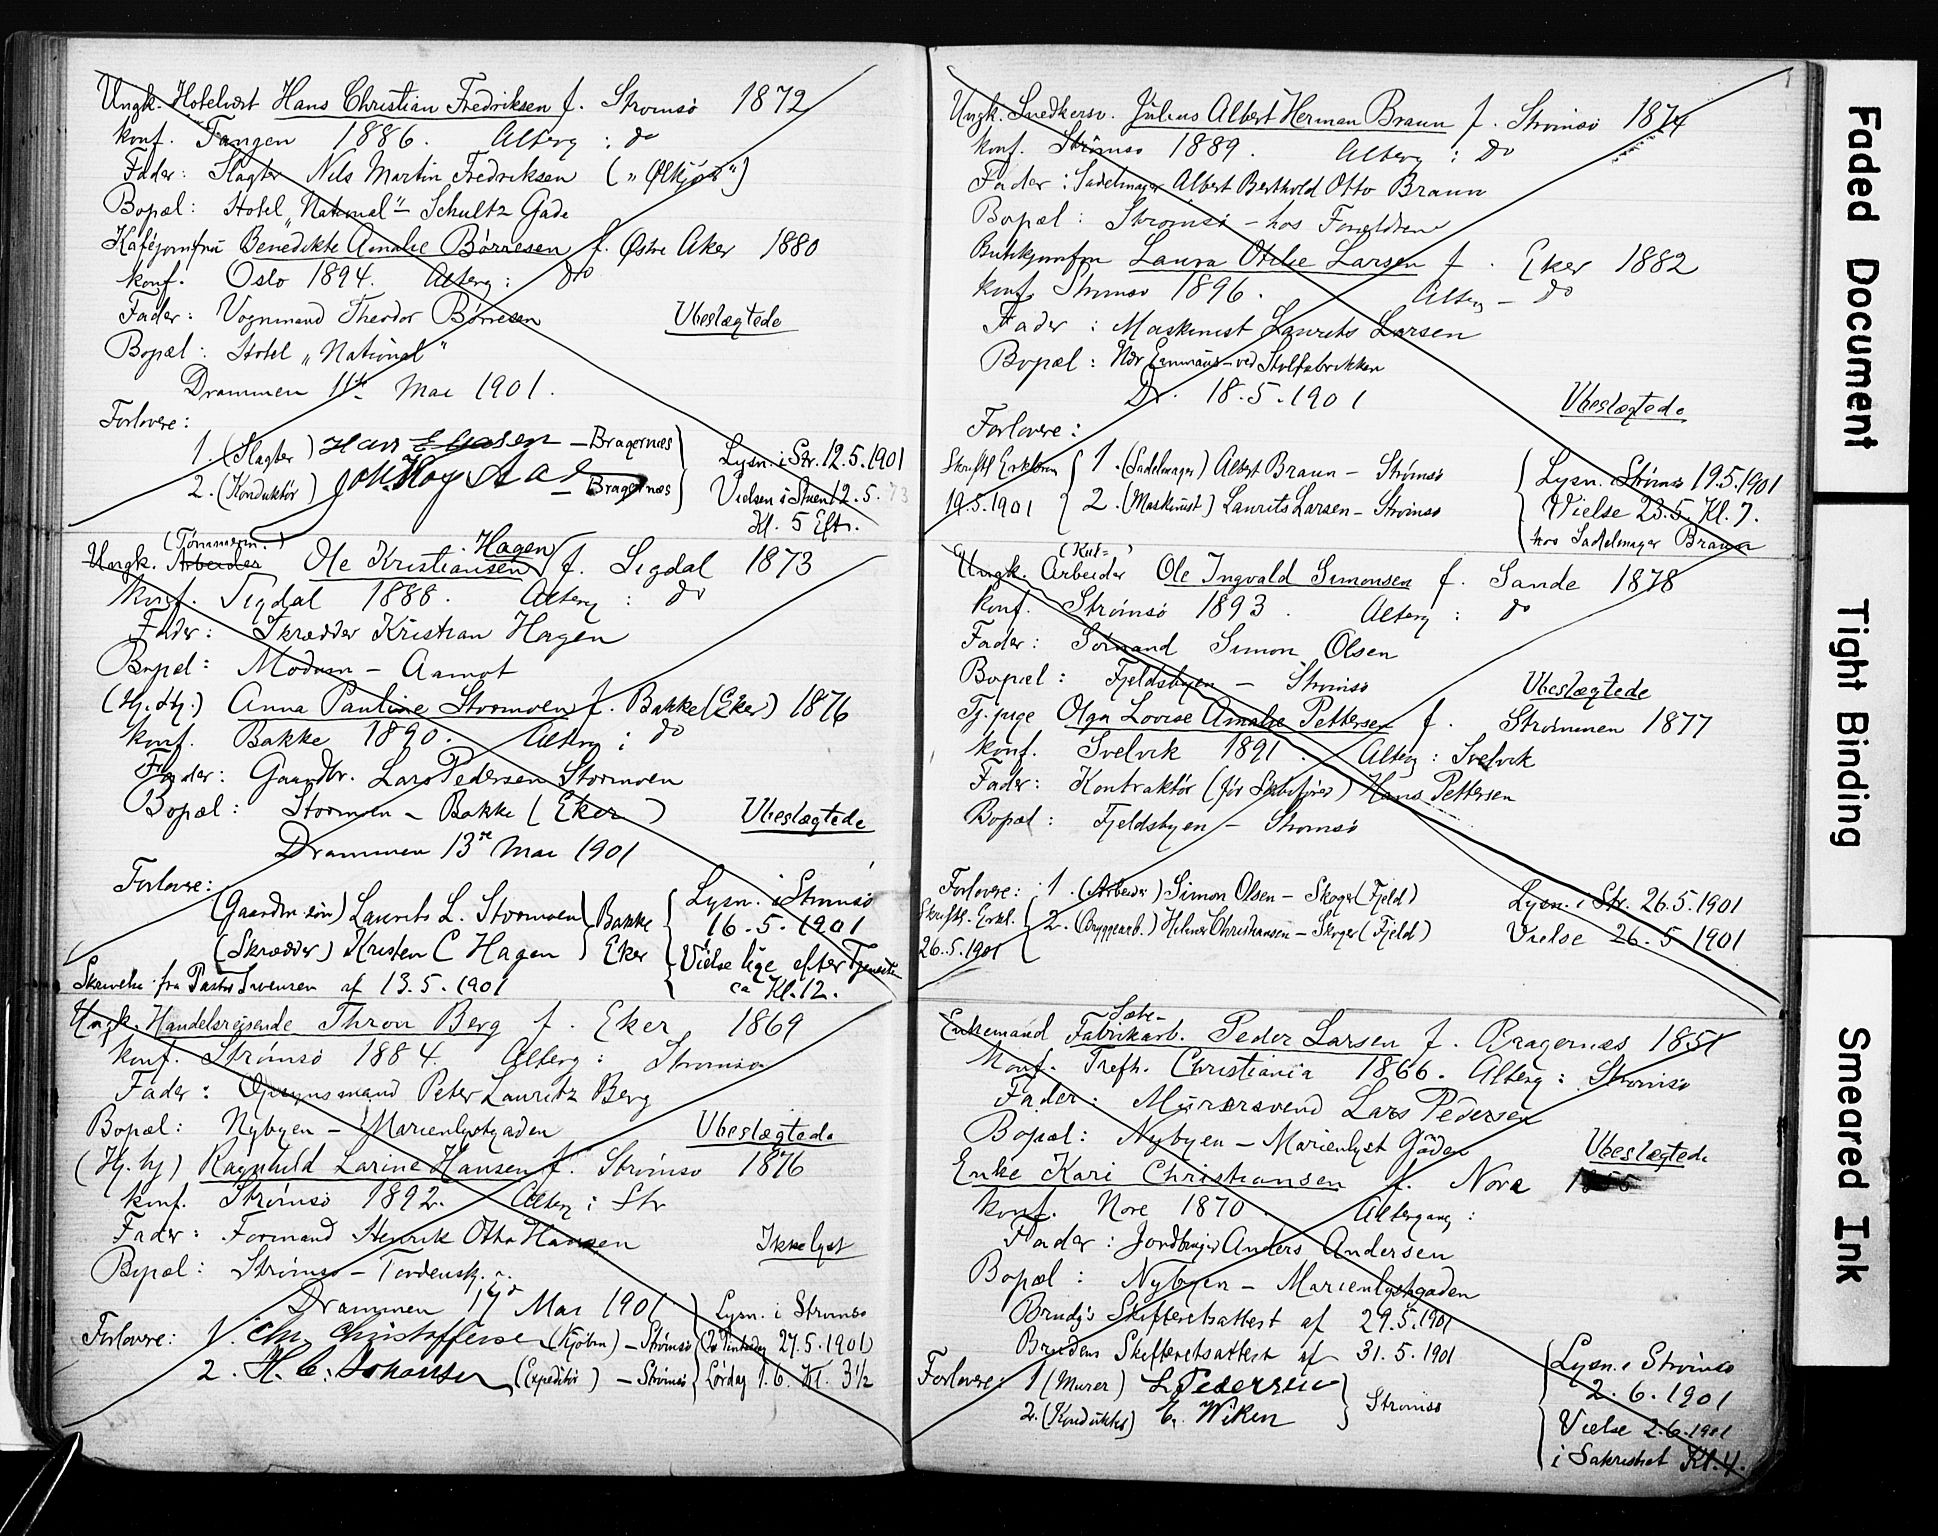 Ungk. Hotelvært Hans Christian Fredriksen f. Strømsø 1872
konf. Tangen 1886. Alterg: do
Fader: Slagter Nils Martin Fredriksen („Ølkjør")
Bopæl: Hotel „National" – Schultz Gade
Kaféjomfru Benedikte Amalie Børresen f. Østre Aker 1880
konf. Oslo 1894. Alterg: do
Fader: Vognmand Theodor Børresen Ubeslægtede
Bopæl: Hotel „National"
Drammen 11te Mai 1901.
Forlovere:
1. (Slagter) Hans – Bragernæs
2. (Konduktør) – Bragernæs
Lysn. i Str. 12.5.1901
Vielsen i Stuen 12.5.
Kl. 5 Eft.
(Tømmerm.) Hagen
Ungk. Arbeider Ole Kristiansen f. Sigdal 1873
konf. Sigdal 1888. Alterg: do
Fader: Skrædder Kristian Hagen
Bopæl: Modum – Aamot
(Hj. Hj.) Anna Pauline Stormoen f. Bakke (Eker) 1876
konf. Bakke 1890. Alterg: do
Fader: Gaardbr. Lars Pedersen Stormoen
Bopæl: Stormoen – Bakke (Eker) Ubeslægtede
Drammen 13de Mai 1901
Forlovere:
(Gaardbr. søn) Laurits L. Stormoen Bakke
(Skrædder) Kristen C Hagen Eker
Lysn. i Strømsø
16.5.1901
Vielse lige efter Tjenesten
ca Kl. 12.
Skrivelse fra Pastor Svensen af 13.5.1901
Ungk. Handelsreisende Thron Berg f. Eker 1869
konf. Strømsø 1884. Alterg: Strømsø
Fader: Opsynsmand Peter Lauritz Berg
Bopæl: Nybyen – Marienlystgaden Ubeslægtede
(Hj. hj) Ragnhild Larine Hansen f. Strømsø 1876
konf. Strømsø 1892. Alterg: Str
Fader: Formand Henrik Otto Hansen Ikke lyst
Bopæl: Strømsø – Tordensk.
Drammen 17de Mai 1901
Forlovere: 1. Chr. Christoffersen (Kjøbm) – Strømsø
2. H. C. Johansen (Expeditør) – Strømsø
Lysn. i Strømsø
(2 Pintsedag 27.5.1901)
Lørdag 1.6. Kl. 3½
Ungk. Snedkersv. Julius Albert Herman Braun f. Strømsø 1874
konf. Strømsø 1889. Alterg: do
Fader: Sadelmager Albert Berthold Otto Braun
Bopæl: Strømsø – hos Forældrene
Butikjomfru Laura Otilie Larsen f. Eker 1882
konf. Strømsø 1896. Alterg – do
Fader: Maskinist Laurits Larsen
Bopæl: Ndr Emmaus – ved Stolfabrikken
Dr. 18.5.1901 Ubeslægtede
Forlovere:
Skriftl Erklæring
19.5.1901
1. (Sadelmager) Albert Braun – Strømsø
2. (Maskinist) Laurits Larsen – Strømsø
Lysn. Strømsø 19.5.1901
Vielse 23.5. Kl. 7.
hos Sadelmager Braun
Ungk. Arbeider Ole Ingvald Simonsen f. Sande 1878
konf. Strømsø 1893. Alterg: do
Fader: Sømand Simon Olsen
Bopæl: Fjeldsbyen – Strømsø Ubeslægtede
Tj. pige Olga Lovise Amalie Pettersen f. Strømmen 1877
konf. Svelvik 1891. Alterg: Svelvik
Fader: Kontraktør (før Skibsfører) Hans Pettersen
Bopæl: Fjeldsbyen – Strømsø
Forlovere: 1. (Arbeider) Simon Olsen – Skoger (Fjeld)
Skriftl. Erkl. 2. (Bryggearb.) Hilmar Christiansen – Skoger (Fjeld)
26.5.1901
Lysn. i Str. 26.5.1901
Vielse 26.5.1901
Sæbe-
Enkemand Fabrikarb. Peder Larsen f. Bragernæs 1851
Konf. Trefh. Christiania 1866. Alterg: Strømsø
Fader: Murersvend Lars Pedersen
Bopæl: Nybyen – Marienlyst Gaden Ubeslægtede
Enke Kari Christiansen f. Nore
konf. Nore 1870. Altergang:
Fader: Jordbruger Anders Andersen
Bopæl: Nybyen – Marienlystgaden
Brudg's Skifteretsattest af 29.5.1901
Brudens Skifteretsattest af 31.5.1901
Forlovere: 1 (Murer) L. Pedersen
2. (Konduktør) C. Wiken
Strømsø
Lysn. i Strømsø
2.6.1901
Vielse 2.6.1901
i Sakristiet Kl. 4.
Faded Document
Tight Binding
Smeared Ink